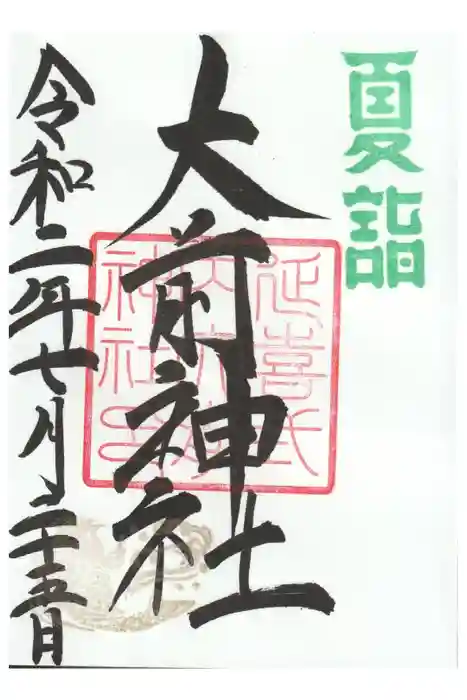 夏詣
大前神社
延喜式
大前
神社印
令和二年七月二十五日